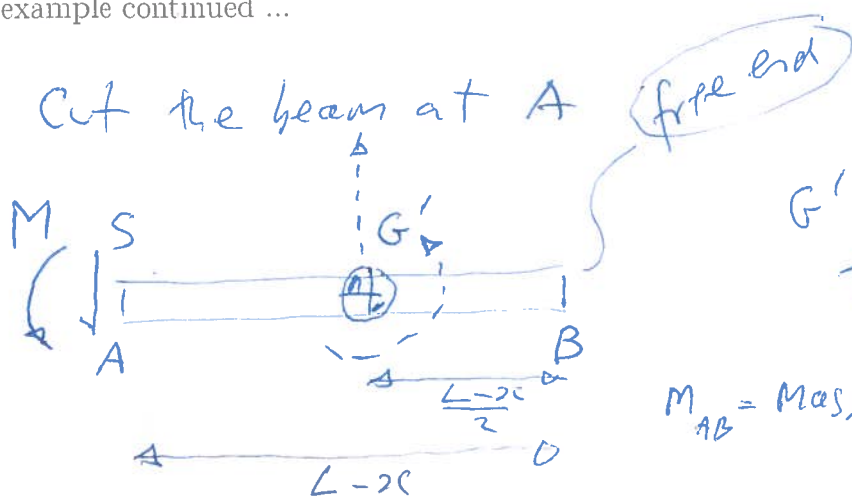 example continued ...
Cut the beam at A
free end
M S G' G'
A B
L-x
2
M_AB = Mas
L-x